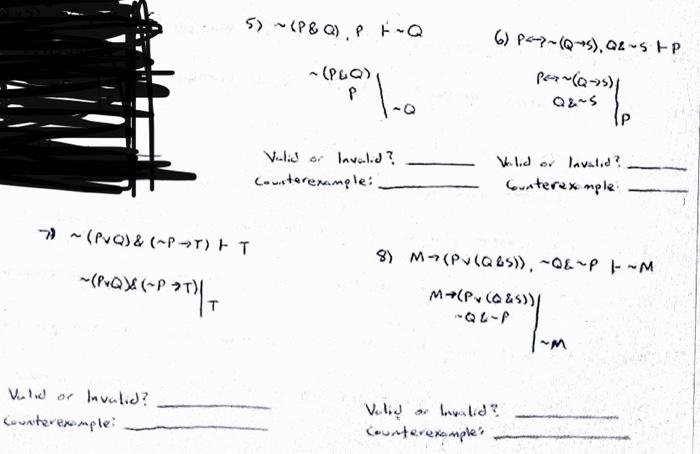 5) ~(P&Q), P ⊢ ~Q
~(P&Q)
P
~Q
Valid or Invalid?
Counterexample:
6) P↔~(Q→S), Q&~S ⊢ P
P↔~(Q→S)
Q&~S
P
Valid or Invalid?
Counterexample:
7) ~(PvQ)&(~P→T) ⊢ T
~(PvQ)&(~P→T)
T
Valid or Invalid?
Counterexample:
8) M→(Pv(Q&S)), ~Q&~P ⊢ ~M
M→(Pv(Q&S))
~Q&~P
~M
Valid or Invalid?
Counterexample: